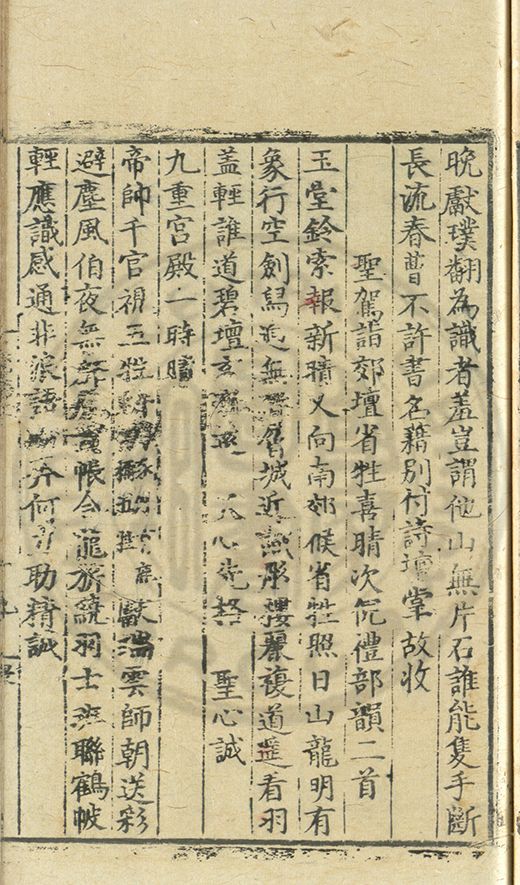 晚獻璞翻為識者羞豈謂他山無片石誰能隻手斷
長流春曹不許書名籍別付詩壇掌故收
聖駕詣郊壇省牲喜晴次倪禮部韻二首
玉堂鈴索報新晴又向南郊候省牲照日山龍明有
象行空劍舄迥無聲層城近識彤樓麗複道遙看羽
盖輕誰道碧壇玄 天心先格 聖心誠
九重宮殿一時晴
帝師千官視五牲 瑞雲師朝送彩
避塵風伯夜無 帳令龍旂繞羽士班聯鶴帔
輕應識感通非 語 何 助精誠